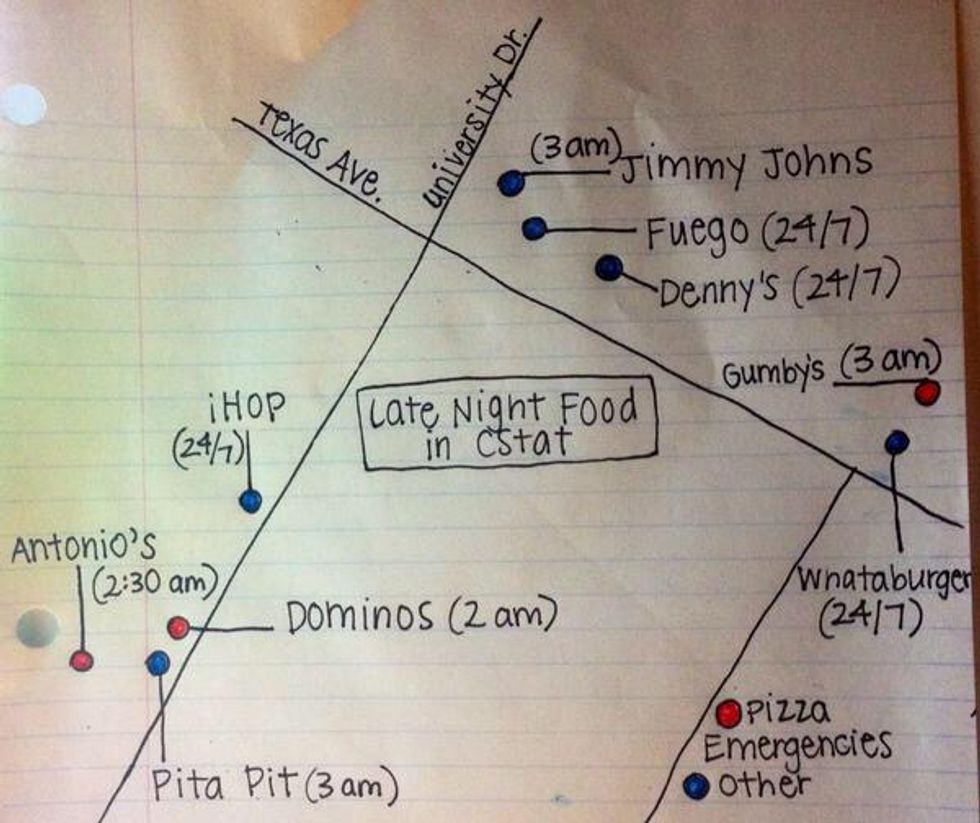 University Dr.
Texas Ave.
(3am) Jimmy Johns
Fuego (24/7)
Denny's (24/7)
Gumby's (3 am)
Late Night Food
in CStat
iHOP
(24/7)
Antonio's
(2:30 am)
Dominos (2 am)
Whataburger
(24/7)
Pita Pit (3 am)
Pizza
Emergencies
Other